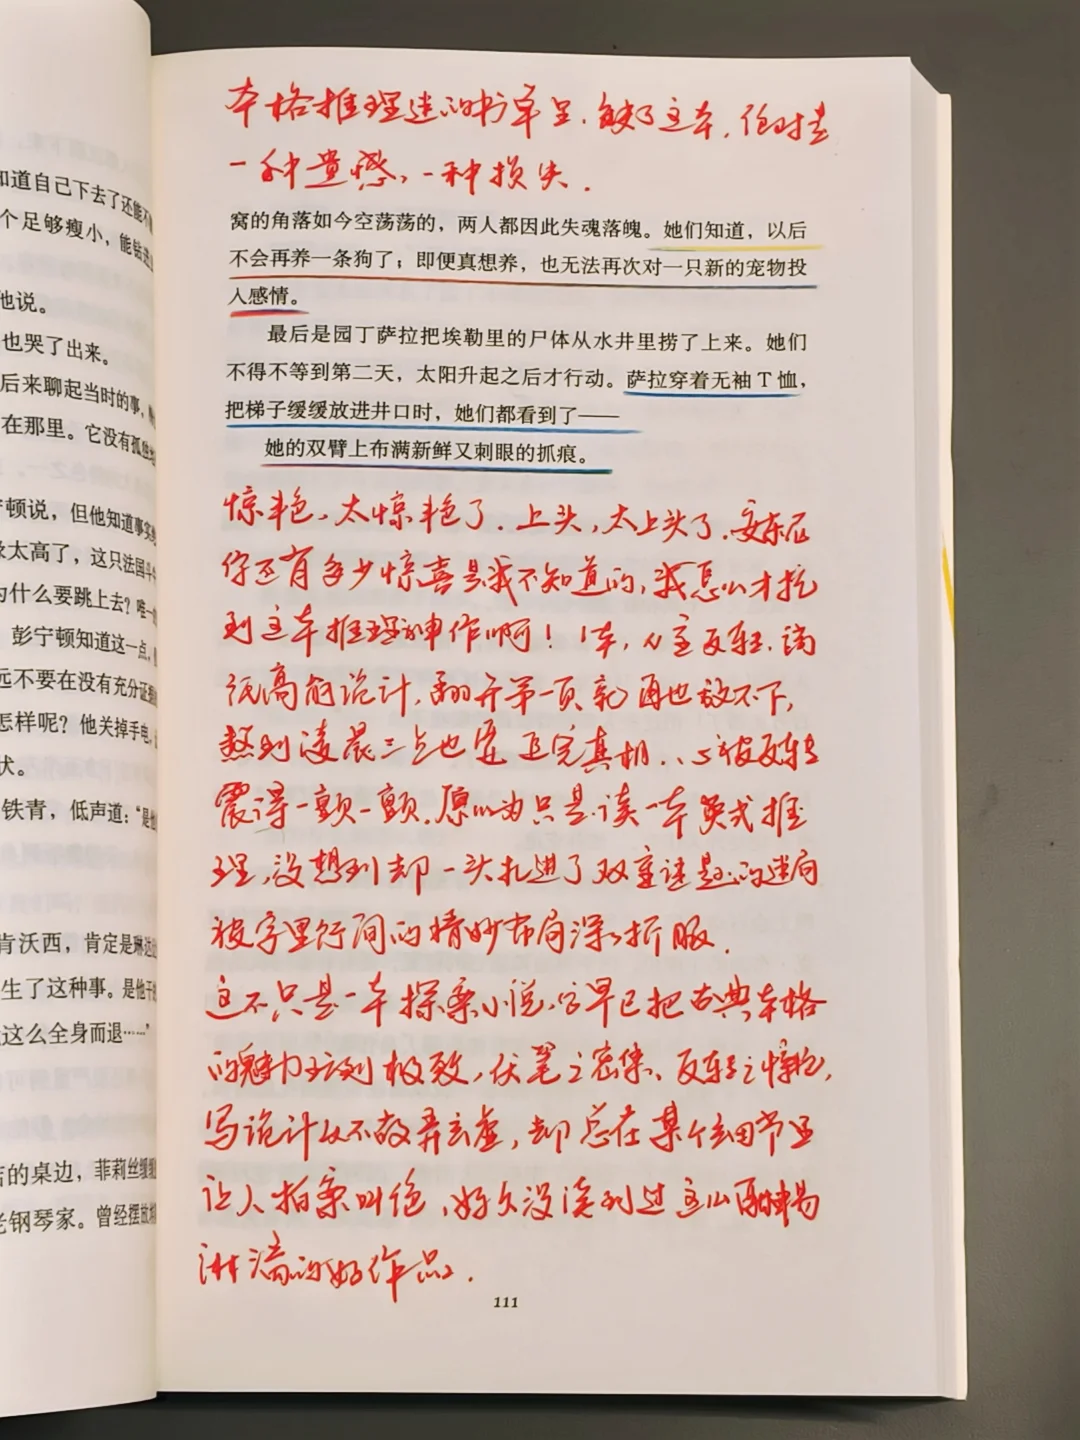 本格推理迷的书单里,缺了这本,绝对是
一种遗憾,一种损失.
窝的角落如今空荡荡的,两人都因此失魂落魄。她们知道,以后
不会再养一条狗了;即便真想养,也无法再次对一只新的宠物投
入感情。
最后是园丁萨拉把埃勒里的尸体从水井里捞了上来。她们
不得不等到第二天,太阳升起之后才行动。萨拉穿着无袖T恤,
把梯子缓缓放进井口时,她们都看到了——
她的双臂上布满新鲜又刺眼的抓痕。
惊艳,太惊艳了.上头,太上头了.安东尼
你还有多少惊喜是我不知道的,我怎么才挖
到这本推理神作啊!1本,八重反转,
高能诡计,翻开第一页就再也放不下,
熬到凌晨三点也要追完真相..心被反转
震得一颤一颤.原以为只是读一本英式推
理,没想到却一头扎进了双重谜题的迷局
被字里行间的精妙布局深深折服.
这不只是一本探案小说,它早已把古典本格
的魅力玩到极致,伏笔之密集、反转之惊艳,
写诡计从不故弄玄虚,却总在某个细节里
让人拍案叫绝,好久没读到过这么酣畅
淋漓的好作品.
111
知道自己下去了还能不
个足够瘦小,能钻进
他说。
也哭了出来。
后来聊起当时的事,
在那里。它没有孤独
顿说,但他知道事实
太高了,这只法国斗
为什么要跳上去?唯一
彭宁顿知道这一点,
远不要在没有充分证据
怎样呢?他关掉手电,
状。
铁青,低声道:“是他
肯沃西,肯定是琳达
生了这种事。是他干
这么全身而退……”
的桌边,菲莉丝缓缓
老钢琴家。曾经摆放